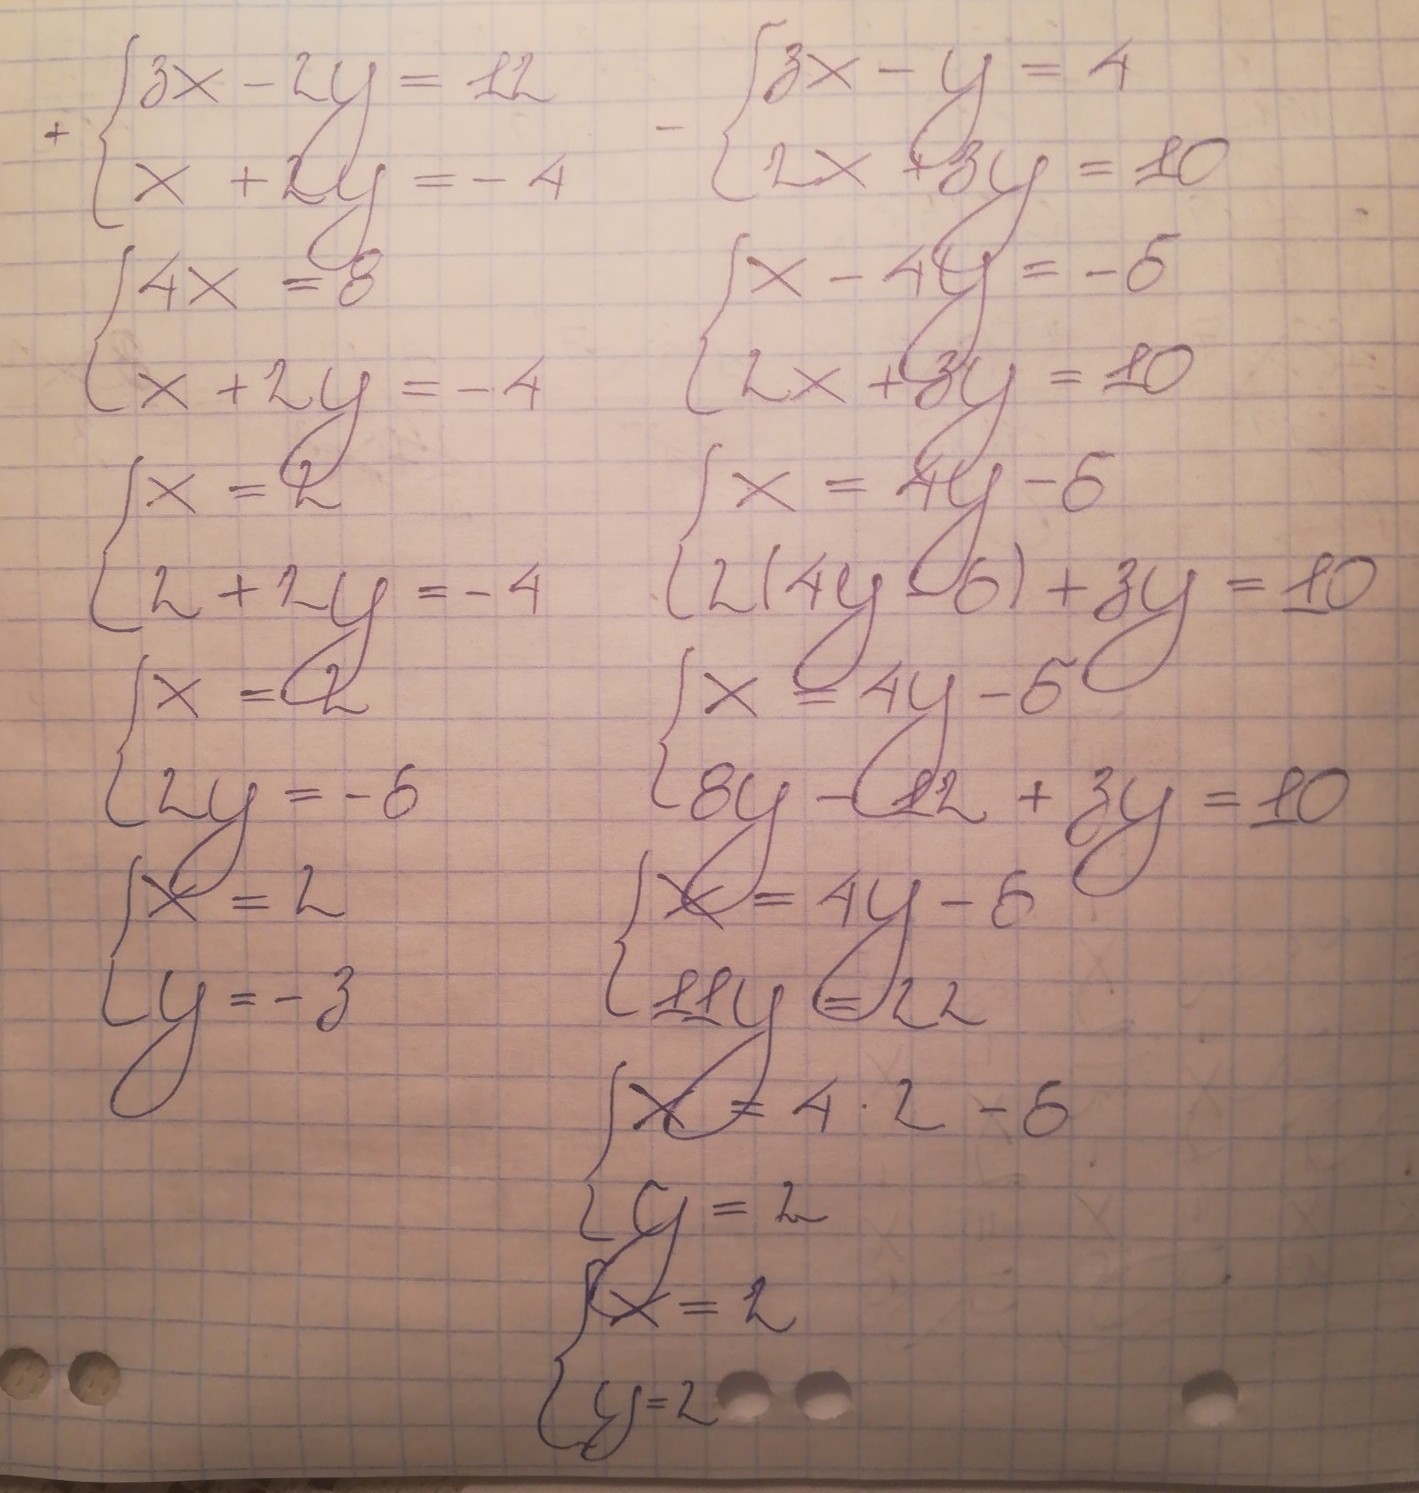 + { 3x - 2y = 12
x + 2y = - 4
{ 4x = 8
x + 2y = - 4
{ x = 2
2 + 2y = - 4
{ x = 2
2y = - 6
{ x = 2
y = - 3
- { 3x - y = 4
2x + 3y = 10
{ x - 4y = - 6
2x + 3y = 10
{ x = 4y - 6
2(4y - 6) + 3y = 10
{ x = 4y - 6
8y - 12 + 3y = 10
{ x = 4y - 6
11y = 22
{ x = 4 · 2 - 6
y = 2
{ x = 2
y = 2